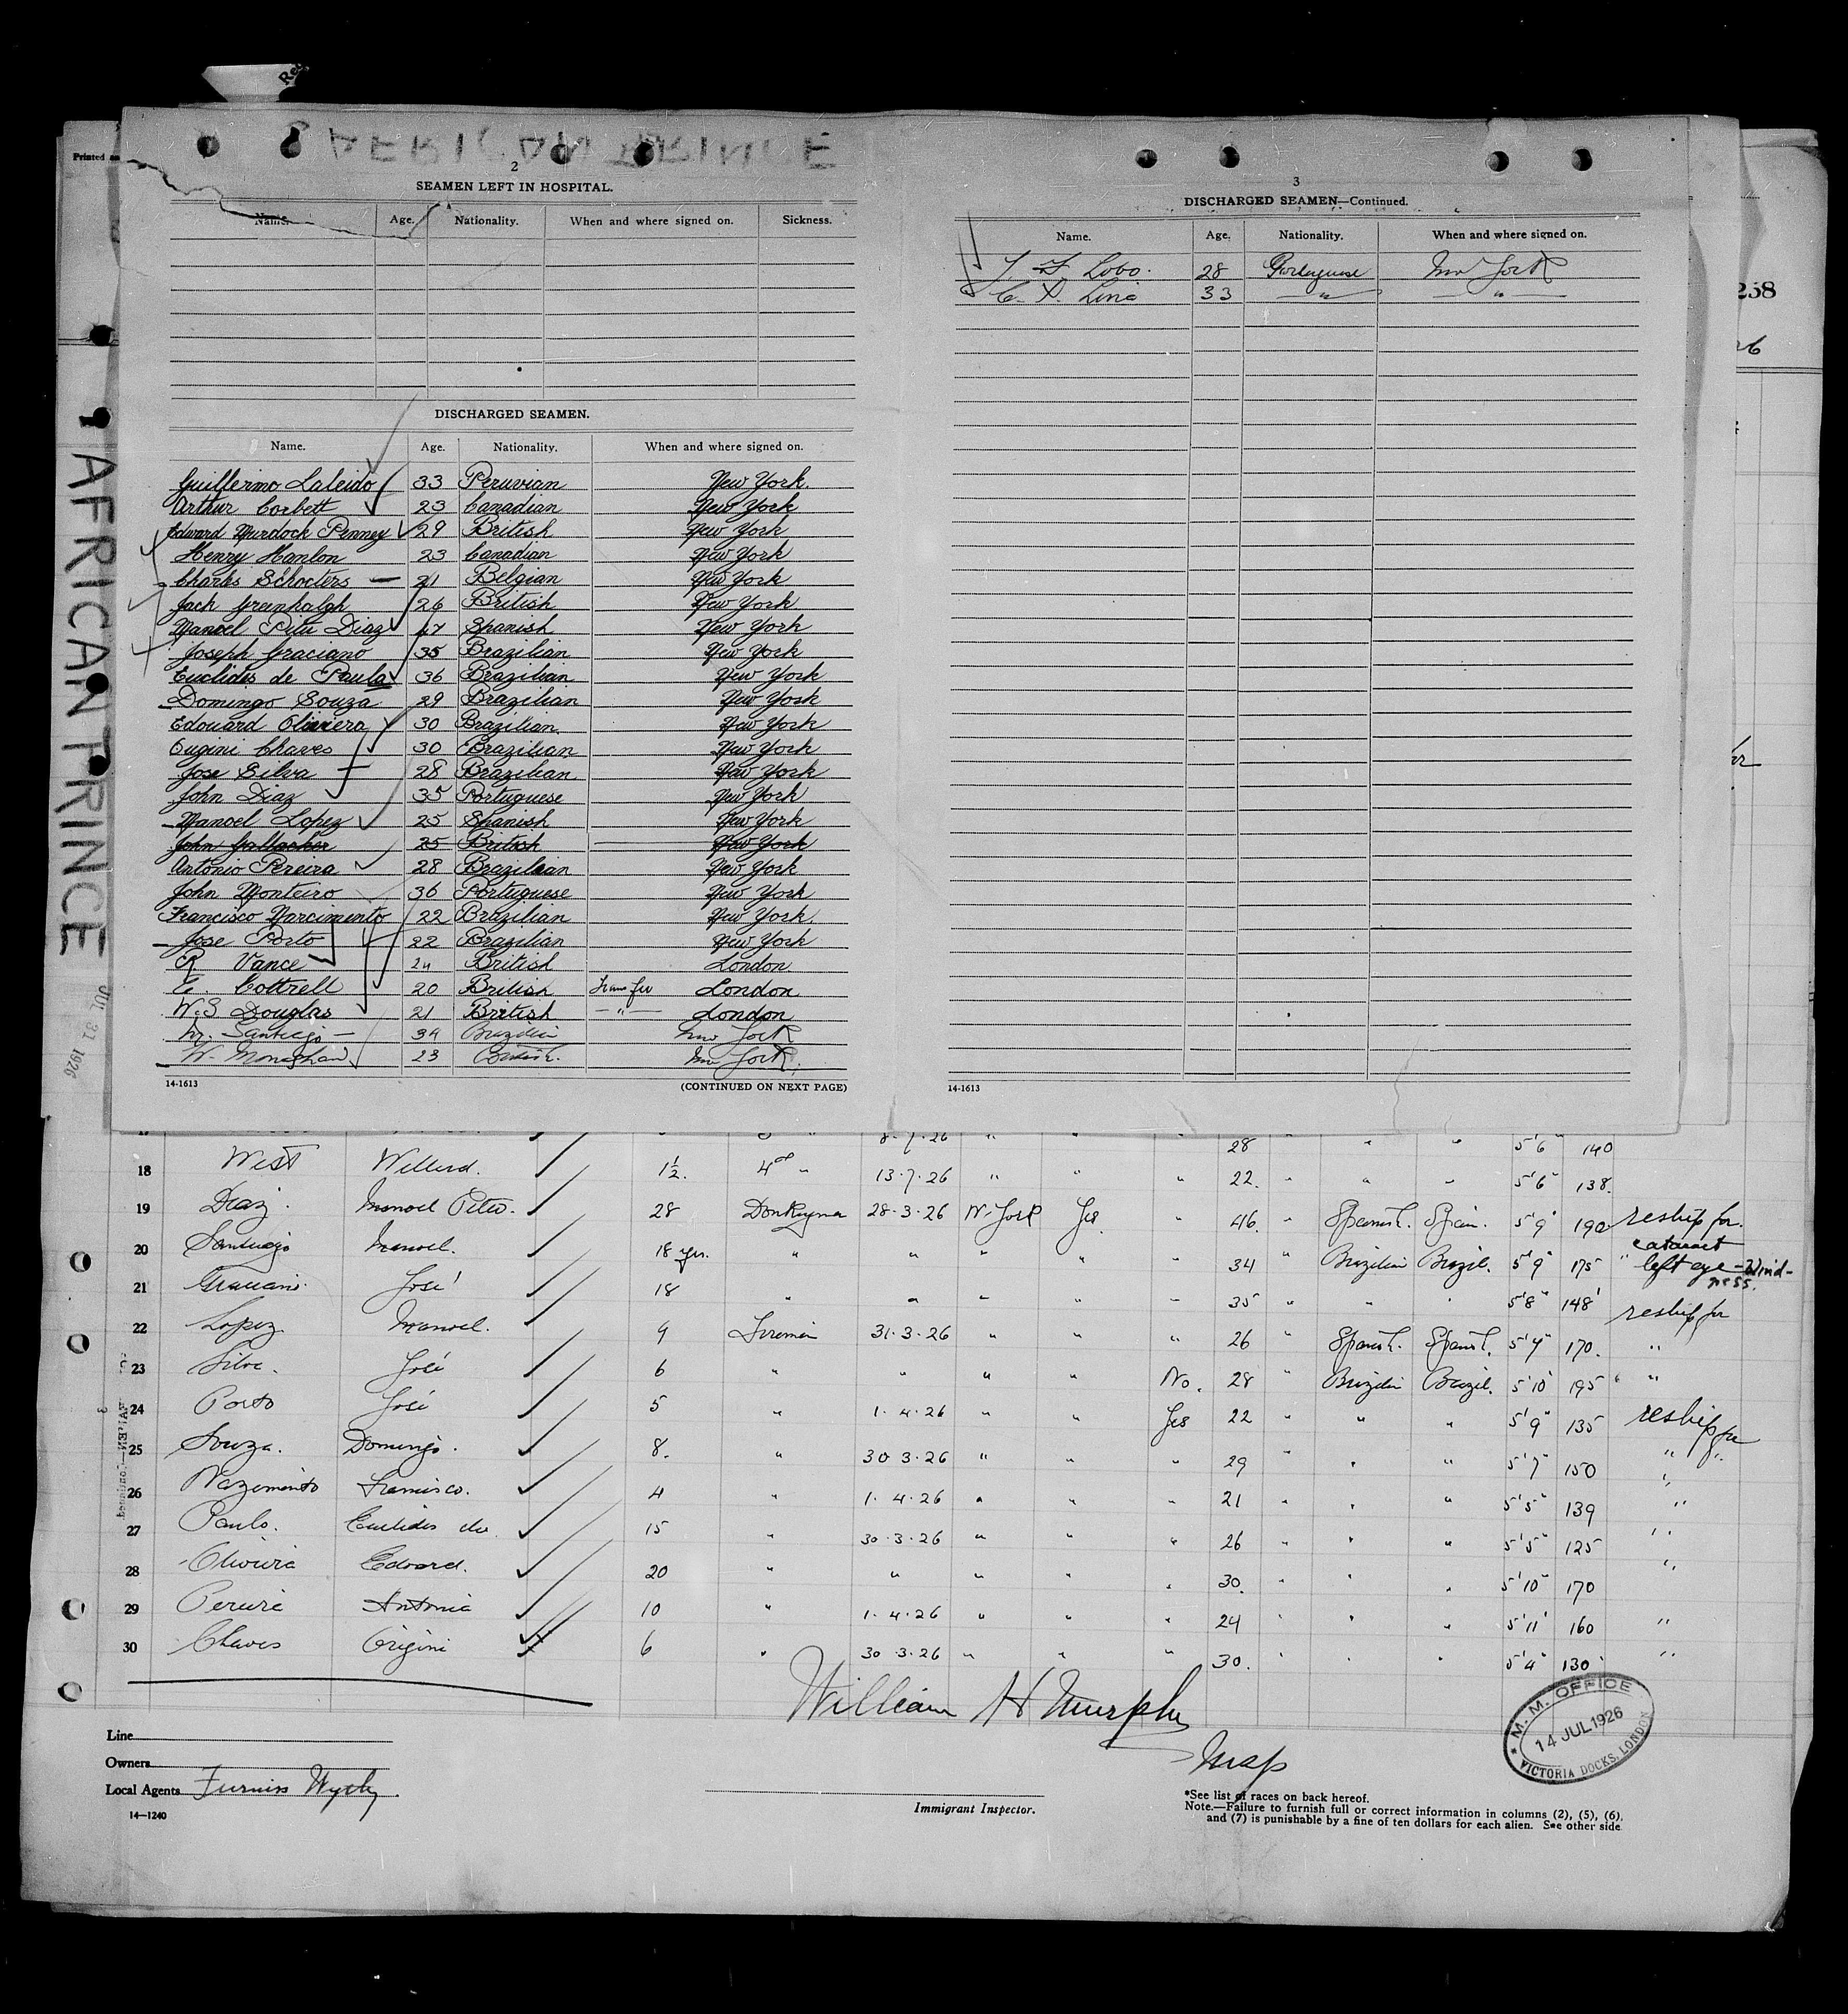 AFRICAN PRINCE
2
SEAMEN LEFT IN HOSPITAL.
Name. Age. Nationality. When and where signed on. Sickness.
DISCHARGED SEAMEN.
Name. Age. Nationality. When and where signed on.
Guillermo Laleido 33 Peruvian New York.
Arthur Corbett 23 Canadian New York
Edward Murdock Penney 29 British New York
Henry Hanlon 23 Canadian New York
Charles Schocters 21 Belgian New York
Jack Greenhalgh 26 British New York
Manoel Diaz 47 Spanish New York
Joseph Graciano 35 Brazilian New York
Euclides de Paula 36 Brazilian New York
Domingo Souza 29 Brazilian New York
Edouard Oliviera 30 Brazilian New York
Eugini Chaves 30 Brazilian New York
Jose Silva 28 Brazilian New York
John Diaz 35 Portuguese New York
Manoel Lopez 25 Spanish New York
John Gallagher 25 British New York
Antonio Pereira 28 Brazilian New York
John Monteiro 36 Portuguese New York
Francisco Narcimento 22 Brazilian New York.
Jose Porto 22 Brazilian New York
R Vance 24 British London
C. Cottrell 20 British Transfer London
W.S Douglas 21 British " London
M. Santiejo 34 Brazilian New York
W. Monaghan 23 British. New York.
14-1613 (CONTINUED ON NEXT PAGE)
3
DISCHARGED SEAMEN—Continued.
Name. Age. Nationality. When and where signed on.
Lobo. 28 Portuguese New York
C. 33 " "
14-1613
Printed
Rec
258
26
AFRICAN PRINCE
JUL 31 1926
17 8.7.26 " " " 28 " " " 5'6" 140
18 West Willerd. 1½. 4th " 13.7.26 " " " 22. " " " 5'6" 138.
19 Diaz. Manoel 28 Donkeyman 28.3.26 N. York Yes " 46. " Spanish. Spain. 5'9" 190 reship for.
cataract
20 Santiejo Manoel. 18 yrs. " " " " " 34 " Brazilian Brazil. 5'9" 175 " left eye - blind-
ness.
21 Graciano. José 18 " " " " " 35 " " " 5'8" 148 reship for
22 Lopez Manoel. 9 Fireman 31.3.26 " " " 26 " Spanish. Spanish. 5'7" 170. "
23 Silva. José 6 " " " " No. 28 " Brazilian Brazil. 5'10" 195 " "
24 Porto José 5 " 1.4.26 " " Yes 22 " " " 5'9" 135 reship for
25 Souza. Domingo. 8. " 30 3.26 " " " 29 " " " 5'7" 150 " "
26 Nazimento Francisco. 4 " 1.4.26 " " " 21 " " " 5'5" 139 "
27 Paulo. Euclides de. 15 " 30.3.26 " " " 26 " " " 5'5" 125 "
28 Oliviera Edoard. 20 " " " " " 30. " " " 5'10" 170 "
29 Pereira Antonio 10 " 1.4.26 " " " 24 " " " 5'11" 160 "
30 Chaves Origini 6 " 30 3.26 " " " 30. " " " 5'4" 130 "
William H Murphy
Line
Owners
Local Agents Furniss Wythy.
14—1240
Immigrant Inspector.
M. M. OFFICE
14 JUL 1926
VICTORIA DOCKS, LONDON
*See list of races on back hereof.
Note.—Failure to furnish full or correct information in columns (2), (5), (6),
and (7) is punishable by a fine of ten dollars for each alien. See other side